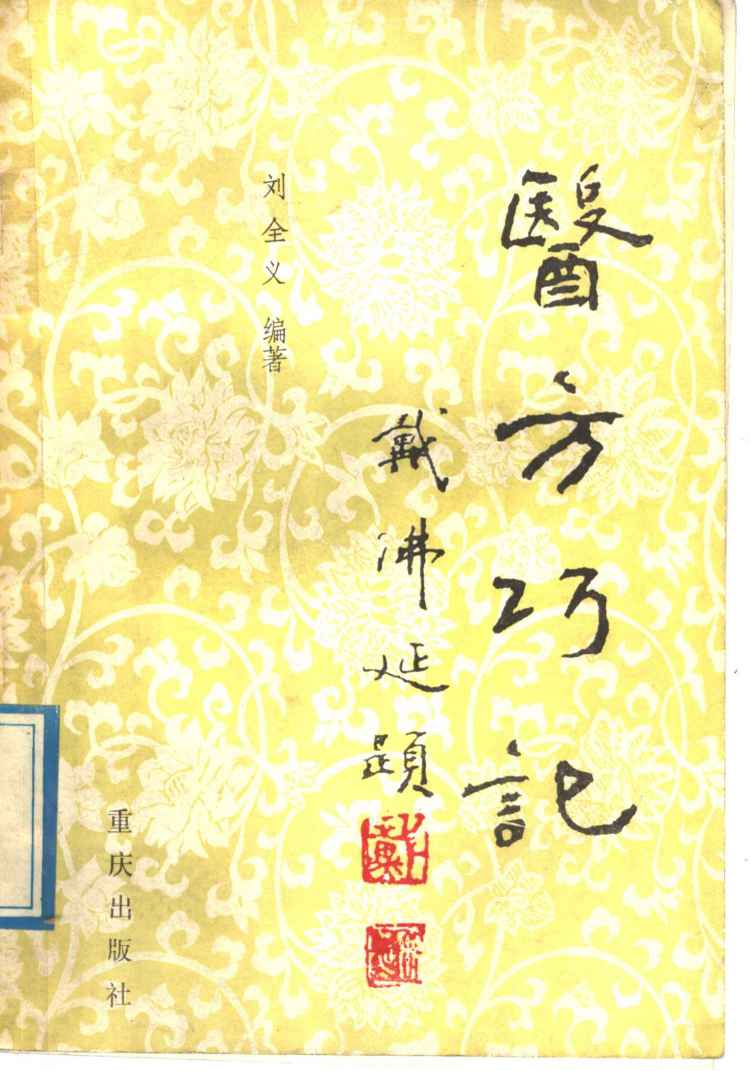 醫方巧記
戴沸延題
刘全义 编著
重庆出版社